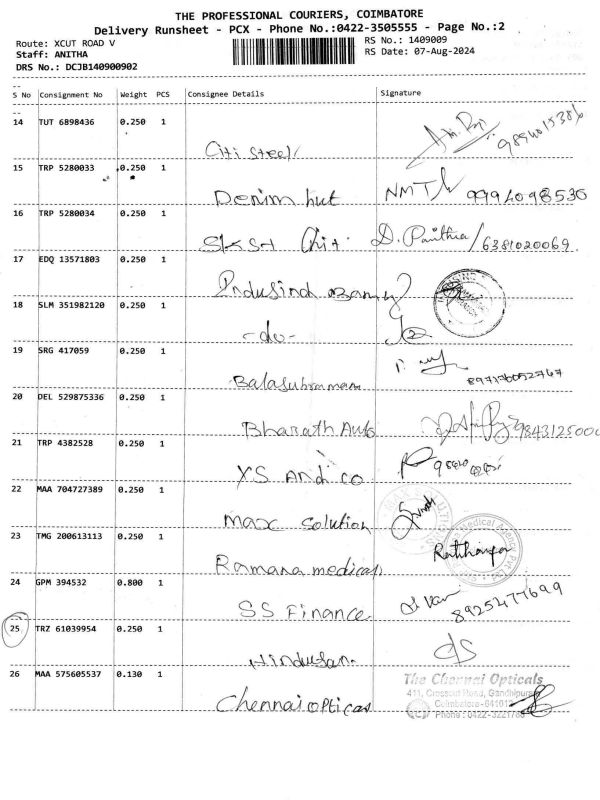 THE PROFESSIONAL COURIERS, COIMBATORE
Delivery Runsheet - PCX - Phone No.:0422-3505555 - Page No.:2
Route: XCUT ROAD V
RS No.: 1409009
Staff: ANITHA
RS Date: 07-Aug-2024
DRS No.: DCJB140900902
S No Consignment No Weight PCS Consignee Details Signature
14 TUT 6898436 0.250 1
Citi Steel
15 TRP 5280033 0.250 1
Denim hut NMT 9994098530
16 TRP 5280034 0.250 1
Chit D. Pavithra/6381020069
17 EDQ 13571803 0.250 1
Indusind
18 SLM 351982120 0.250 1
-do-
19 SRG 417059 0.250 1
Balasubramaam
20 DEL 529875336 0.250 1
Bharath Auto
21 TRP 4382528 0.250 1
YS And co
22 MAA 704727389 0.250 1
max solution
23 TMG 200613113 0.250 1
Ramana medical
24 GPM 394532 0.800 1
SS Finance 8925477699
25 TRZ 61039954 0.250 1
Hindusan
26 MAA 575605537 0.130 1
Chennai opticas
The Chennai Opticals
411, Crosscut Road, Gandhipuram
Coimbatore-641012